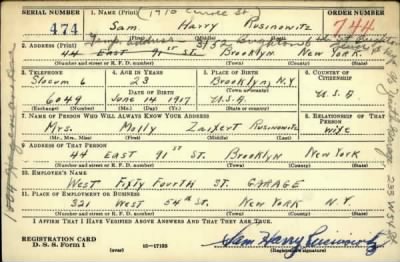 SERIAL NUMBER
474
1. NAME (Print)
(1910
St)
Sam Harry Rusinowitz
(First) (Middle) (Last)
ORDER NUMBER
744
2. ADDRESS (Print)
44 East 91st St. Brooklyn New York.
(Number and street or R. F. D. number) (Town) (County) (State)
3. TELEPHONE
Slocum 6
6049
(Exchange) (Number)
4. AGE IN YEARS
23
DATE OF BIRTH
June 14 1917
(Mo.) (Day) (Yr.)
5. PLACE OF BIRTH
Brooklyn, N.Y
(Town or county)
U.S.A
(State or country)
6. COUNTRY OF CITIZENSHIP
U.S.A
7. NAME OF PERSON WHO WILL ALWAYS KNOW YOUR ADDRESS
Mrs. Molly Rusinowitz
(Mr., Mrs., Miss) (First) (Middle) (Last)
8. RELATIONSHIP OF THAT PERSON
wife
9. ADDRESS OF THAT PERSON
44 East 91st St. Brooklyn New York
(Number and street or R. F. D. number) (Town) (County) (State)
10. EMPLOYER'S NAME
West Fifty Fourth St. GARAGE
11. PLACE OF EMPLOYMENT OR BUSINESS
321 West 54th St. New York N.Y.
(Number and street or R. F. D. number) (Town) (County) (State)
I AFFIRM THAT I HAVE VERIFIED ABOVE ANSWERS AND THAT THEY ARE TRUE.
REGISTRATION CARD
D. S. S. Form 1
(over)
16-17195
Sam Harry Rusinowitz
(Registrant's signature)